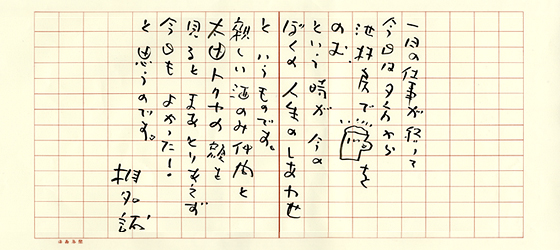 一日の仕事が終って
今日は夕方から
池林房でを
のむ、
という時が今の
ぼくの人生のしあわせ
というものです。
親しい酒のみ仲間と
太田トクヤの顔を
見るとまあとりあえず
今日もよかった!
と思うのです。
椎名誠